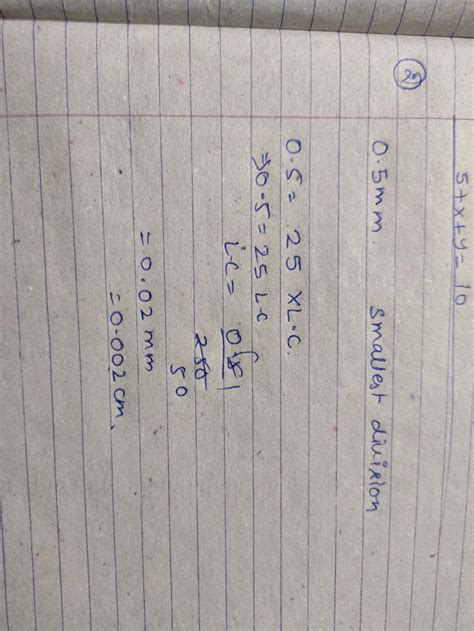 5+x+y= 10
2) 0.5mm. smallest division
0.5 = 25 XL.C.
⇒0.5 = 25 L.C
L.C = 0.5 1
250
50
= 0.02 mm
= 0.002 cm.